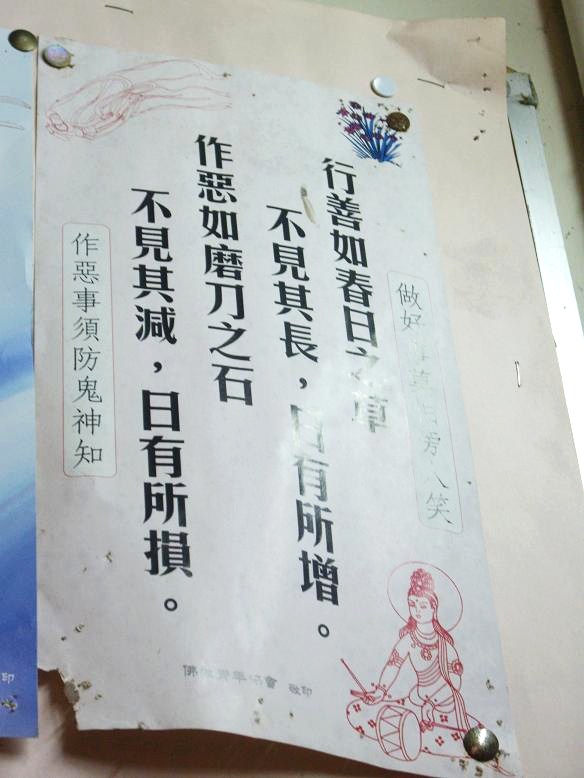 做好事莫怕旁人笑
行善如春日之草
不見其長，日有所增。
作惡如磨刀之石
不見其減，日有所損。
作惡事須防鬼神知
佛教青年協會 敬印
印